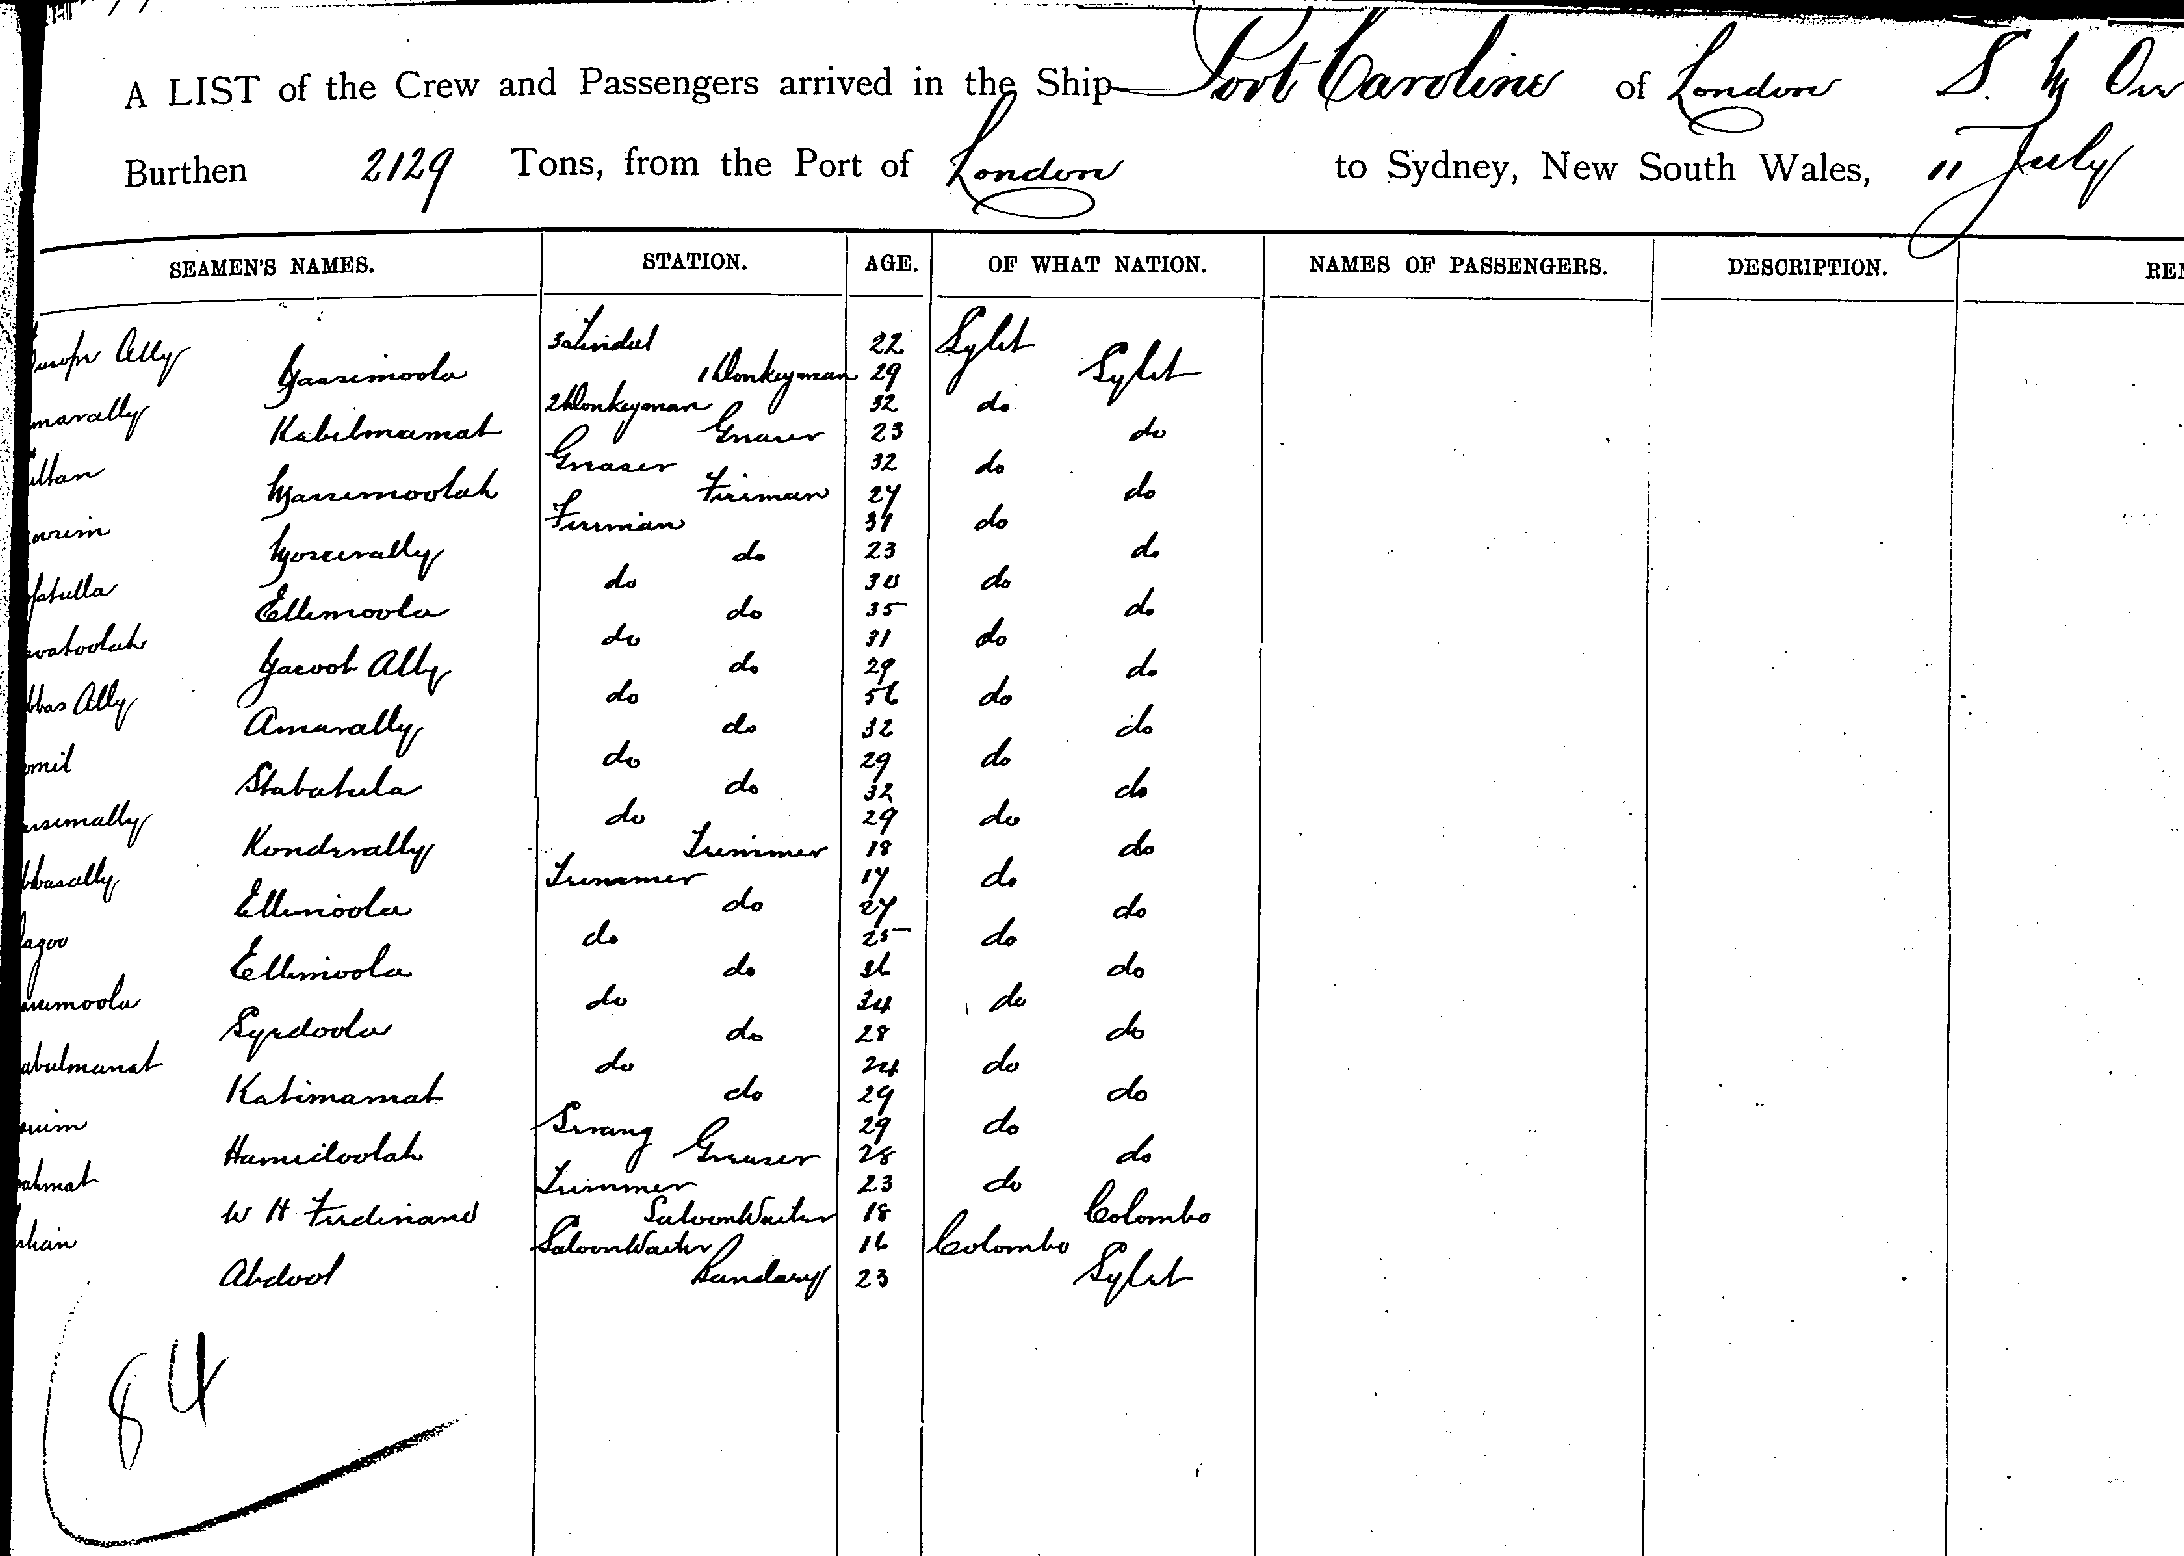 A LIST of the Crew and Passengers arrived in the Ship Port Caroline of London S. M Orr
Burthen 2129 Tons, from the Port of London to Sydney, New South Wales, 11 July
SEAMEN'S NAMES. STATION. AGE. OF WHAT NATION. NAMES OF PASSENGERS. DESCRIPTION. REM
Ally 3 Tindal 22 Sylet
Yassimoola 1 Donkeyman 29 Sylet
marally 2 Donkeyman 32 do
Kabilmamat Greaser 23 do
ultan Greaser 32 do
Fireman 27 do
Fireman 37 do
do 23 do
fatulla do 30 do
Ellimoola do 35 do
vatoolah do 31 do
Yacoob Ally do 29 do
bbas Ally do 56 do
Amarally do 32 do
omil do 29 do
Stabatula do 32 do
ssimally do 29 do
Konderally Trimmer 18 do
bbasally Trimmer 17 do
Ellimoola do 27 do
agoo do 25 do
Ellimoola do 36 do
simoola do 34 do
Syedoola do 28 do
abulmanat do 24 do
Katimamat do 29 do
rim Serang 29 do
Hamidoolah Greaser 28 do
ahmat Trimmer 23 do
W H Ferdinand Saloon Waiter 18 Colombo
Saloon Waiter 16 Colombo
Abdool Bandary 23 Sylet
84